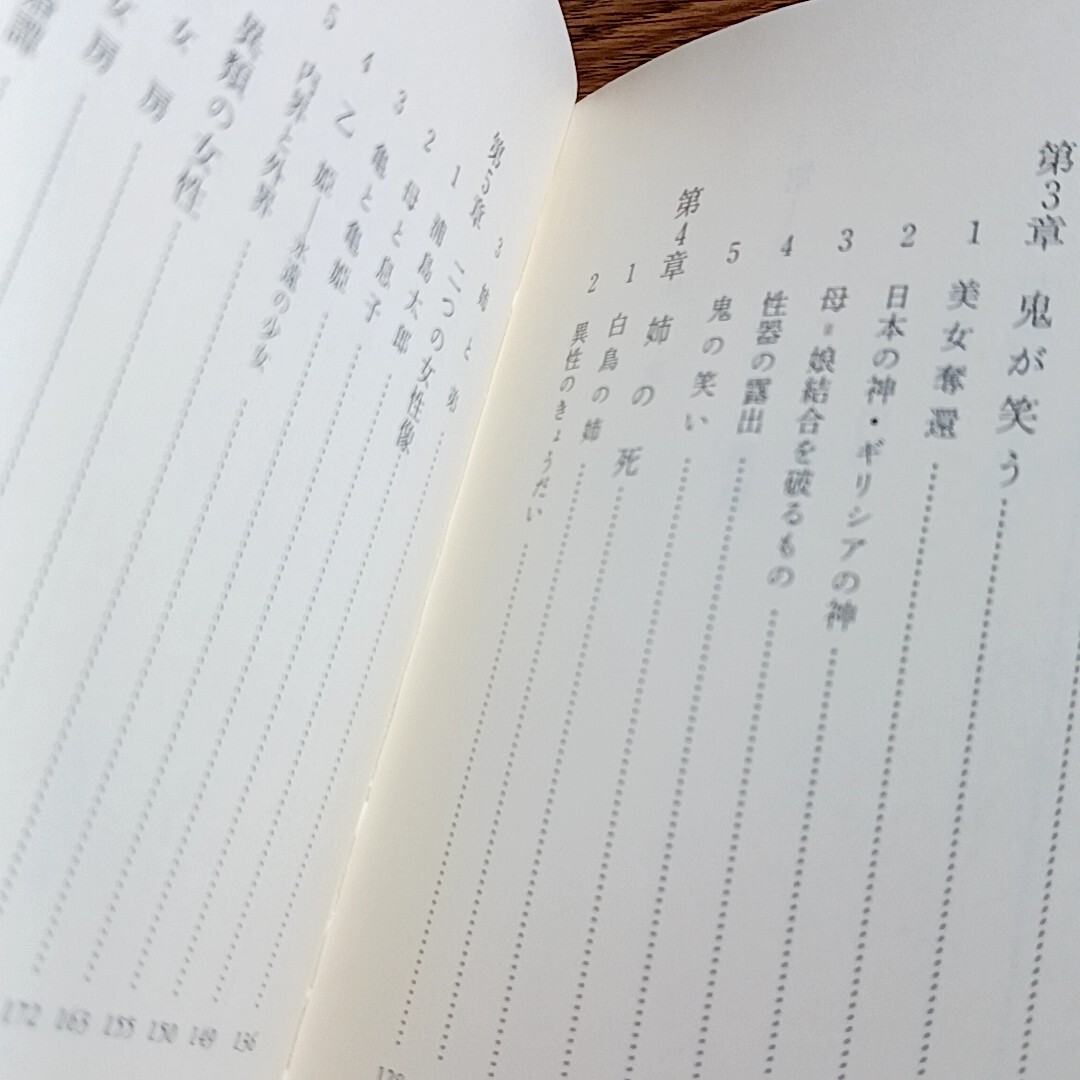 第3章 鬼が笑う
1 美女奪還
2 日本の神・ギリシアの神
3 母=娘結合を破るもの
4 性器の露出
5 鬼の笑い
第4章 姉の死
1 白鳥の姉
2 異性のきょうだい
3 姉と弟
第5章 二つの女性像
1 浦島太郎
2 母と息子
3 亀と亀姫
4 乙姫――永遠の少女
5 内界と外界
異類の女性
女房
女房
136
149
150
155
163
172